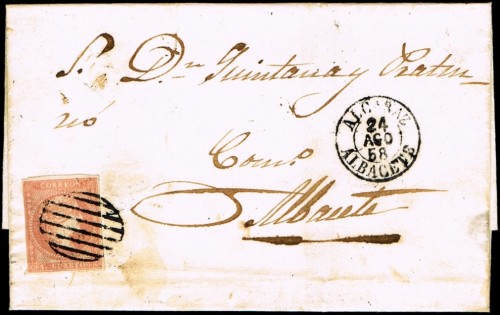 S. Dn Quintana y
rió
ALCARAZ
24
AGO
58
ALBACETE
Como
Albacete
CORREOS